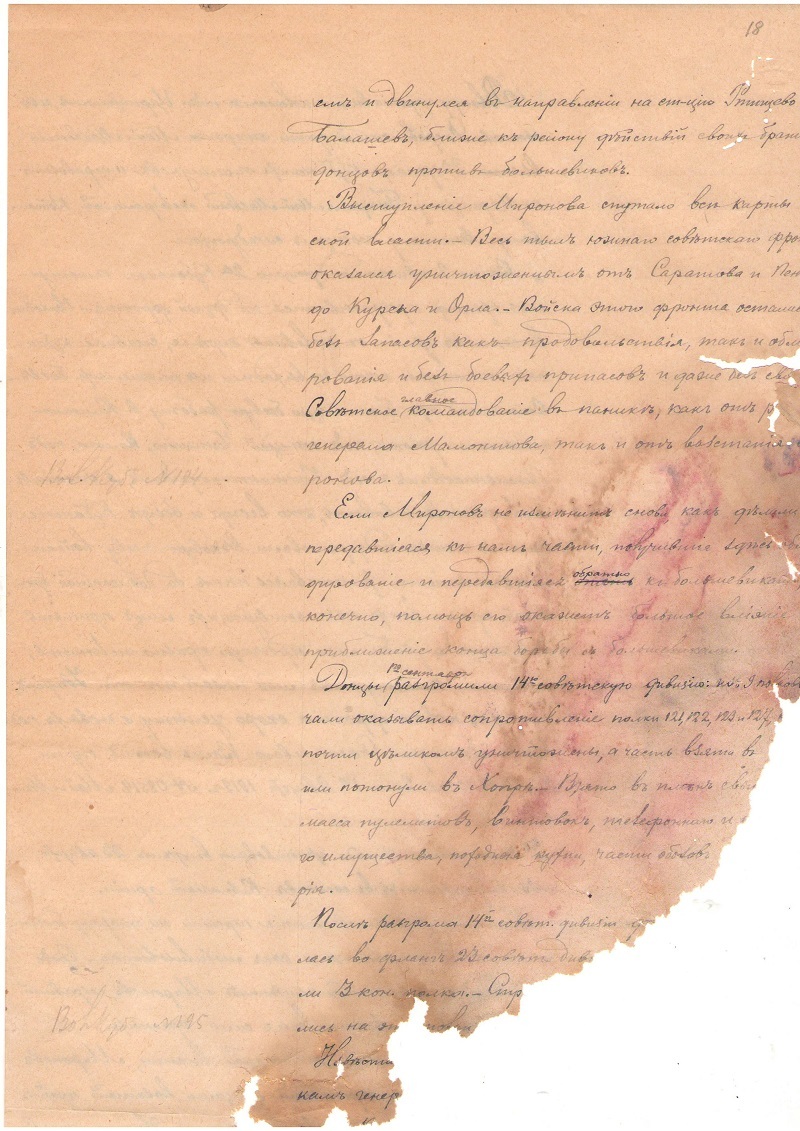 18
емъ и двинулся въ направленіи на ст-цію Ртищево
Балашевъ, ближе къ району дѣйствій своихъ брат
донцовъ противъ большевиковъ.
Выступленіе Миронова спутало всѣ карты
ской власти.- Весь тылъ южнаго совѣтскаго фро
оказался уничтоженнымъ отъ Саратова и Пен
до Курска и Орла.- Войска этого фронта остались
безъ запасовъ какъ продовольствія, такъ и обм
рованія и безъ боевыхъ припасовъ и даже безъ
главное
Совѣтское командованіе въ паникѣ, какъ отъ р
генерала Мамонтова, такъ и отъ возстанія
Вов. №194
ронова.
Если Мироновъ не измѣнитъ снова какъ
передавшіеся къ намъ части, получившіе здѣсь об
обратно
дированіе и передавшіяся къ большевикам
конечно, помощь его окажетъ большое вліяніе
приближеніе конца борьбы съ большевиками.
сентября
Донцы разгромили 14ю совѣтскую дивизію: изъ 9 полков
чали оказывать сопротивленіе полки 121, 122, 123 и 127,
почти цѣликомъ уничтожены, а часть взято въ
или потонули въ Хопрѣ.- Взято въ плѣнъ свы
масса пулеметовъ, винтовокъ, телефоннаго и
го имущества, походныя кухни, части обозовъ
рія.
Послѣ разгрома 14й совѣт. дивизіи
лась во флангъ 23 совѣт. див
ли 3 кон. полка.- Стр
Вов. №195
лись на
камъ генер